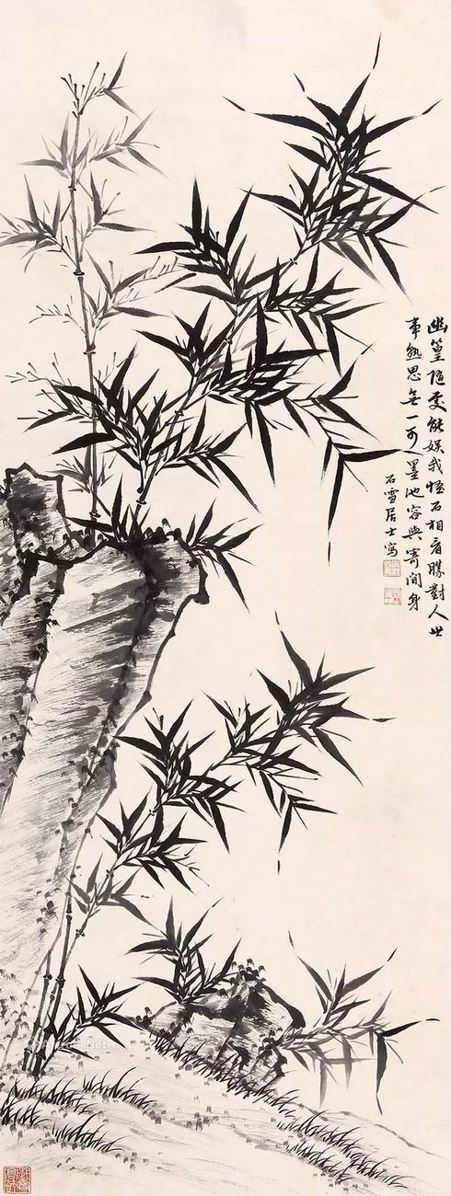 幽篁隨處能娛我怪石相看勝對人世
事熟思無一可墨池容與寄閒身
石雪居士寫